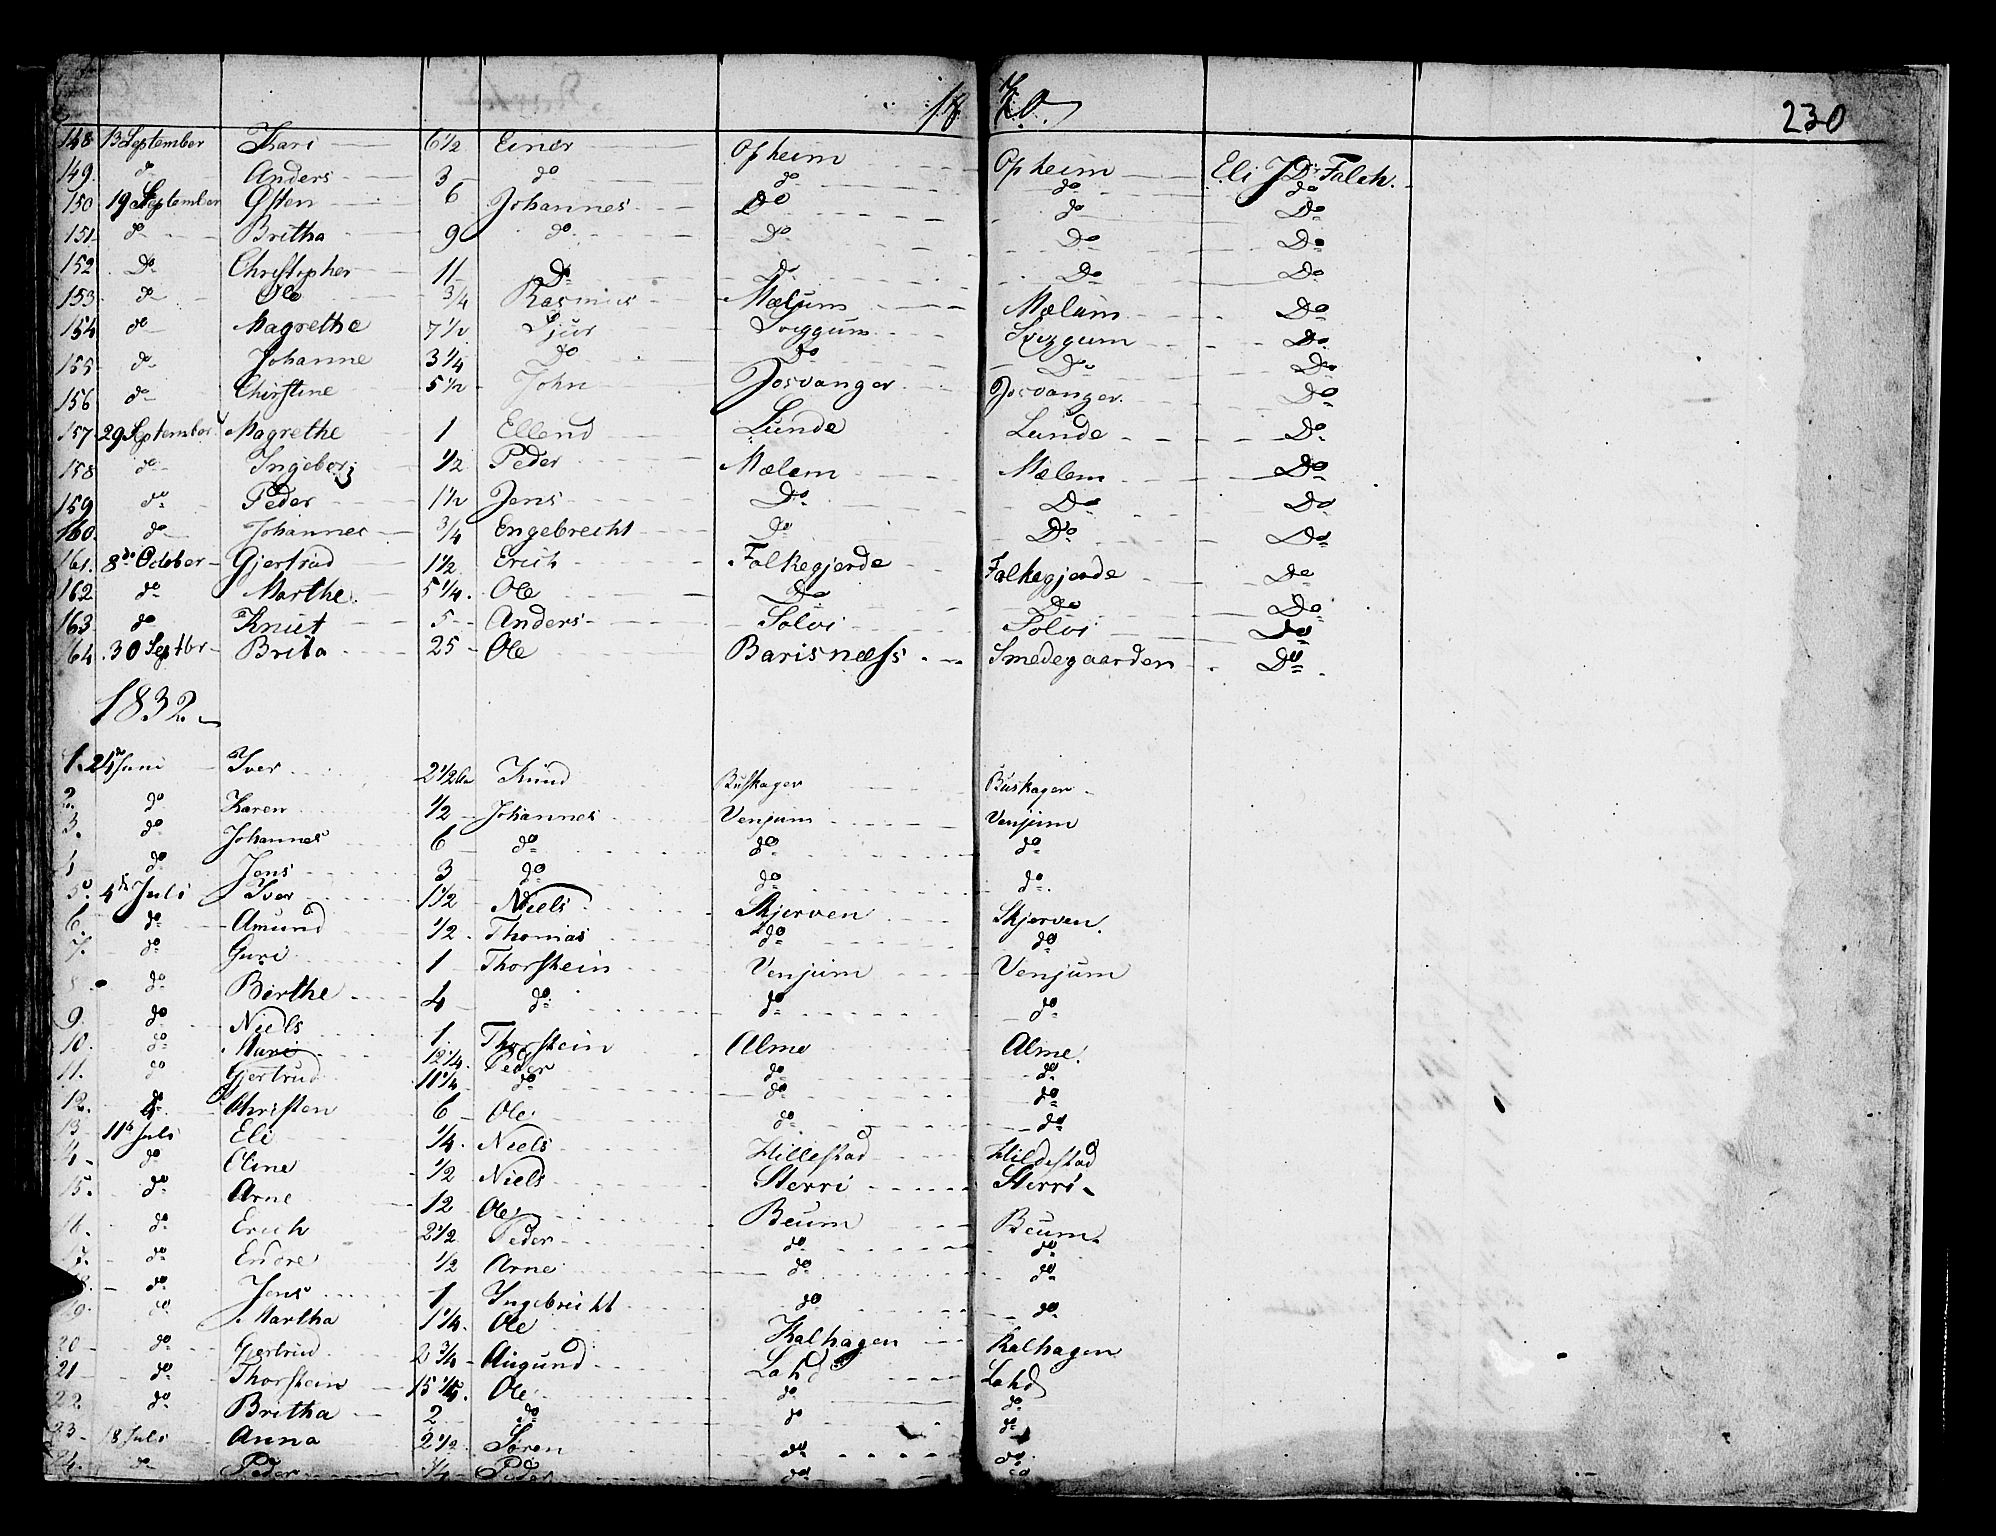 230
148 13 September Kari 6 1/2 Einar Opheim Opheim Eli J Dr Falch.
149. do Anders 3 do do do do
150 19 September Østen 6 Johannes Do do Do
151 do Britha 9 do Do Do Do
152 Do Christopher 11 Do d. Do Do
153 do Ole 3/4 Rasmus Mælum Mælum Do
154 do Magrethe 7 1/2 Sjur Sviggum Sviggum Do
155 do Johanne 3 1/4 Do do Do Do
156 do Christine 5 1/2 John Josvanger Josvanger Do
157 29 September Magrethe 1 Ellend Lunde Lunde Do
158 do Ingeborg 1/2 Peder Mælem Mælem Do
159 do Peder 1 1/2 Jens Do Do Do
160 do Johannes 3/4 Engebrecht Do Do Do
161. 8de October Gjertrud 1 1/2 Erich Falkegjerde Falkegjerde Do
162 do Marthe 5 1/4. Ole Do Do Do
163 do Knut 5 Anders Solvi Solvi Do
64 30 Septbr Brita 25 Ole Barisnæss Smedegaarden Do
1832.
1. 24de Juni Iver 2 1/2 Knud Buskager Buskagen
2. do Karen 1/2 Johannes Venjum Venjum
3. do Johannes 6 do do do
do Jens 3 do do do.
5. 4de Juli Iver 1 1/2 Niels Skjerven Skjerven.
6. do Amund 1/2 Thomas do do
7. do Guri 1 Thorstein Venjum Venjum
8 do Birthe 4 do do do
9. do Niels 1 Thorstein Alme Alme.
10. do Mari 12 1/4. Peder do do
11. do Gjertrud 11 1/4 do do do
12. do Christen 6 Ole do do
13. 11te Juli Eli 1/4. Niels Hillestad Hildestad
4 do Eline 1/2 Niels Sterri Sterri
15. do Arne 12 Ole Beum Beum
16. do Erich 2 1/2 Peder do do
17. do Endre 1/2 Arne do do
18. do Jens 1 Ingebricht do do
19. do Martha 1 1/4. Ole Kalhagen Kalhagen
20 do Gjertrud 2 3/4 Augund Lahd Lahd
21 do Thorstein 15 Ole do do
22 do Britha 2 do do do
23. 18 Juli Anna 2 1/2 Søren do do
24. do Peder 3/4 Peder do do